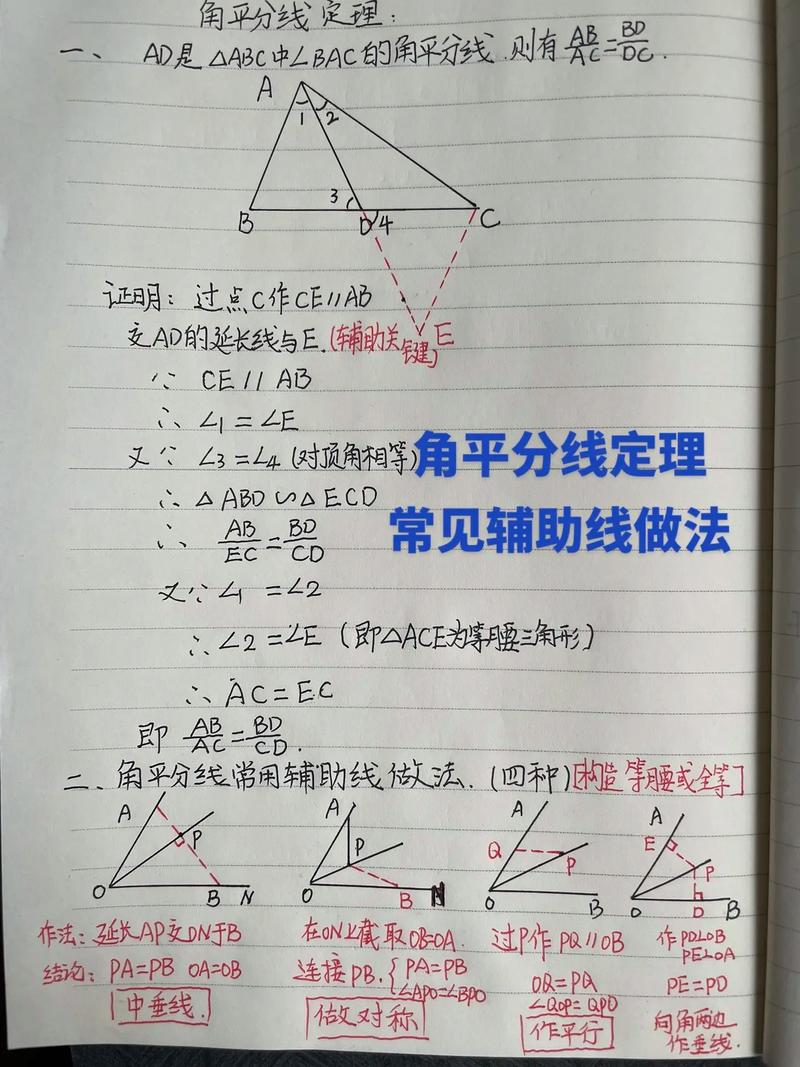 角平分线定理:
一、AD是△ABC中∠BAC的角平分线.则有AB/AC=BD/DC.
A
1 2
3
B D 4 C
证明: 过点C作CE∥AB
交AD的延长线与E.(辅助关键) E
∵ CE∥AB
∴ ∠1=∠E
又∵ ∠3=∠4(对顶角相等)
角平分线定理
∴ △ABD∽△ECD
常见辅助线做法
∴ AB/EC=BD/CD
又∵ ∠1=∠2
∴∠2=∠E(即△ACE为等腰三角形)
∴ AC=EC
即 AB/AC=BD/CD.
二、角平分线常用辅助线做法.(四种)[构造等腰或全等]
A P O B N
A P O B N
A Q P O B
A E P O D B
作法: 延长AP交ON于B
结论: PA=PB OA=OB
中垂线.
在ON上截取OB=OA.
连接PB.{PA=PB
∠APO=∠BPO
做对称
过P作PQ∥OB
OQ=PQ
∠QOP=QPO
作平行
作PD⊥OB
PE⊥OA
PE=PD
向角两边
作垂线.